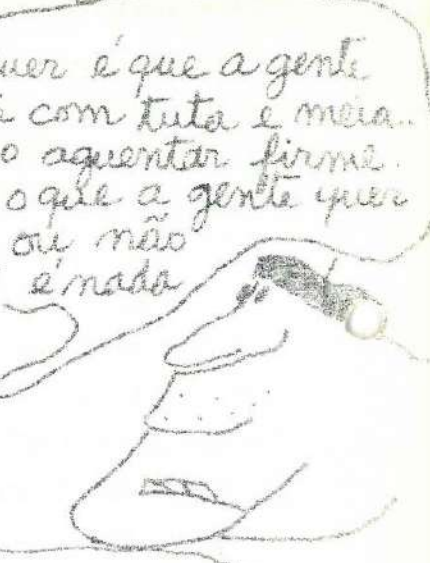 uer é que a gente
com tuta e meia..
o aguentar firme.
o que a gente quer
ou não
é nada